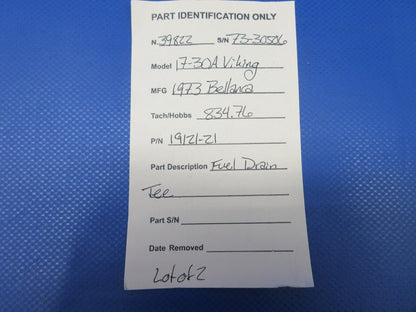 PART IDENTIFICATION ONLY
N. 39822 S/N 73-30506
Model 17-30A Viking
MFG 1973 Bellanca
Tach/Hobbs 834.76
P/N 19121-21
Part Description Fuel Drain
Tee
Part S/N
Date Removed
Lot of 2